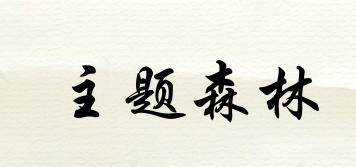 主题森林